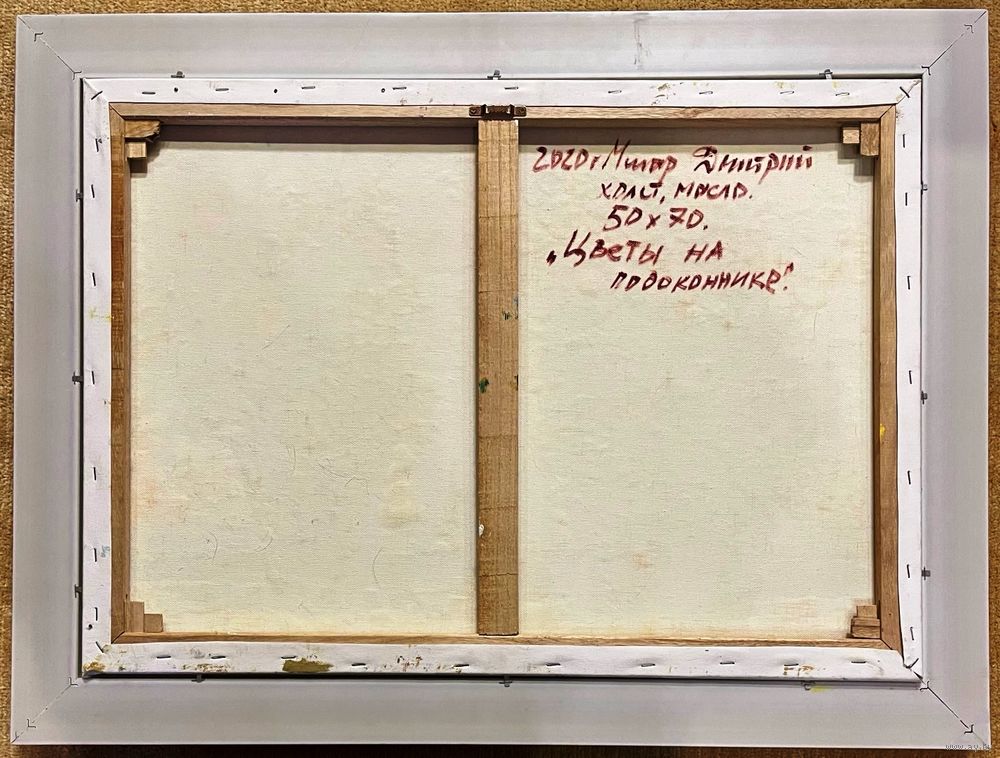 2020г Мшар Дмитрий
холст, масло.
50 х 70.
„Цветы на
подоконнике".
www.ay.by